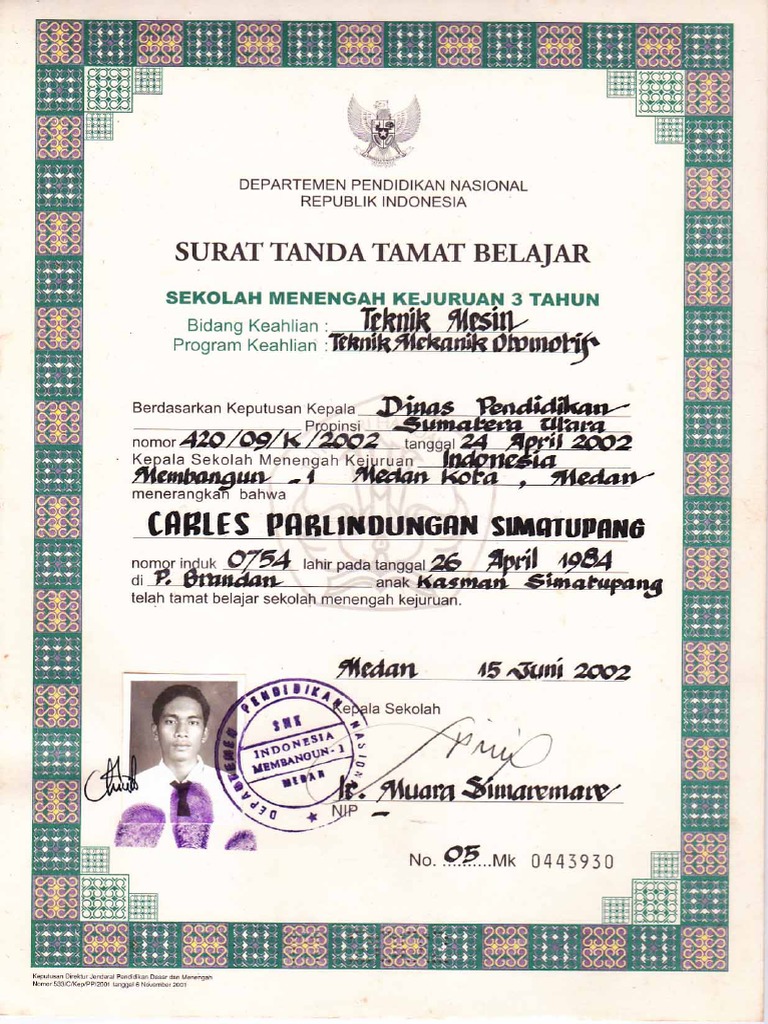 DEPARTEMEN PENDIDIKAN NASIONAL
REPUBLIK INDONESIA
SURAT TANDA TAMAT BELAJAR
SEKOLAH MENENGAH KEJURUAN 3 TAHUN
Bidang Keahlian : Teknik Mesin
Program Keahlian : Teknik Mekanik Otomotif
Berdasarkan Keputusan Kepala Dinas Pendidikan
Propinsi Sumatera Utara
nomor 420/09/K/2002 tanggal 24 April 2002
Kepala Sekolah Menengah Kejuruan Indonesia
Membangun - 1 Medan Kota, Medan
menerangkan bahwa
CARLES PARLINDUNGAN SIMATUPANG
nomor induk 0754 lahir pada tanggal 26 April 1984
di P. Brandan anak Kasman Simatupang
telah tamat belajar sekolah menengah kejuruan.
Medan 15 Juni 2002
Kepala Sekolah
DEPARTEMEN PENDIDIKAN NASIONAL
SMK
INDONESIA
MEMBANGUN - 1
MEDAN
Ir. Muara Simaremare
NIP -
No. 05 Mk 0443930
Keputusan Direktur Jenderal Pendidikan Dasar dan Menengah
Nomor 533/C/Kep/PP/2001 tanggal 6 November 2001